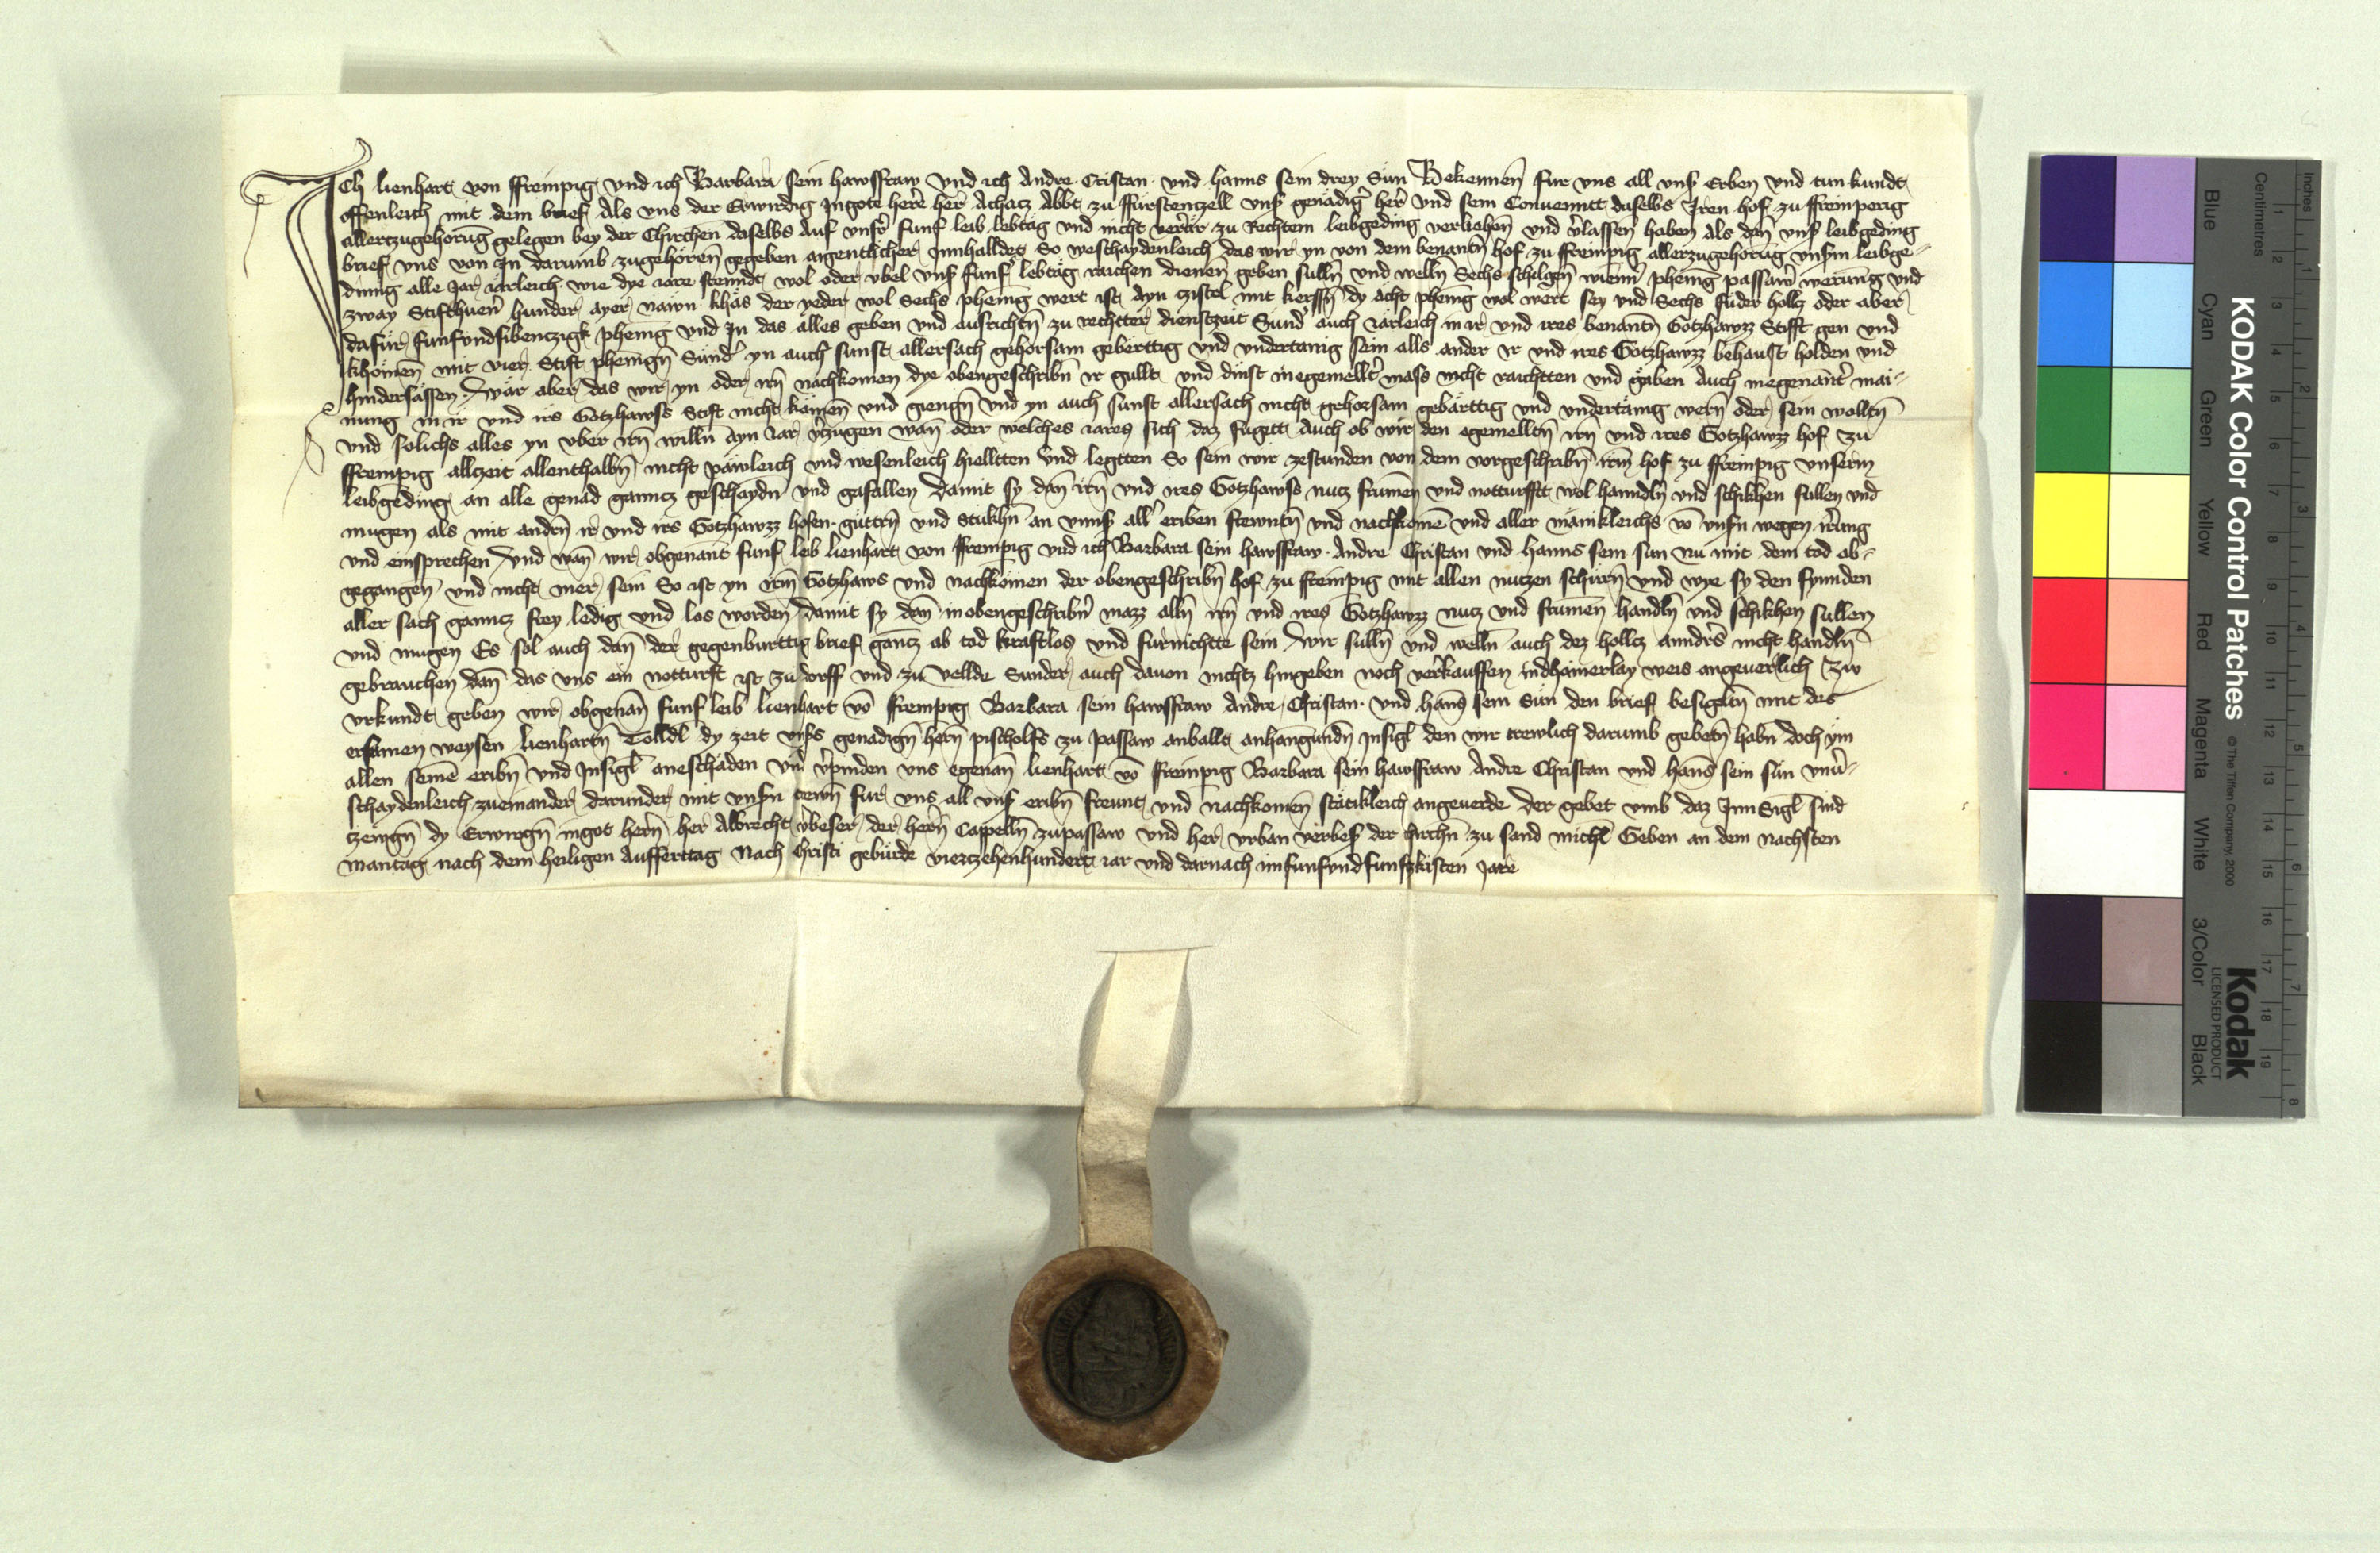 Ich lienhart von ffrempig vnd ich Barbara sein hawsfraw vnd ich Andre Cristan vnd hanns sein drey Sün Bekennen fur vns all vnser Erben vnd tun kundt
offenleich mit dem brief Als vns der Erwirdig Ingote herr her Achacz Abbt zu ffürstenczell vnser genädiger herr vnd sein Conuenntt daselbs Iren hof zu ffremperig
allerczugehorung gelegen bey der Chirchen daselbs Auf vnser funf leib lebtäg vnd nicht verrär zu Rechtem leibgeding verliehen vnd verlassen haben Als dan vnser leibgeding
brief vns von In darumb zugehören gegeben aigentlicher Innhalldet So weschaydenleich das wir yn von dem benanten hof zu ffrempig allerzugehorug vnserm leibge-
dinng alle Jar iärleich wie dye iare steendt wol oder vbel vnser funf lebtäg raichen dienen geben sulln vnd welln Sechs schilgen wienner phening passawer werung vnd
zway Stifthuenr hunder ayer nawn khäs der yeder wol Sechs phening wert ist Ayn czistel mit kerssen dy acht phening wol wert sey vnd Sechs fuder hollcz oder aber
dafür funfvndsibenczigk phenig vnd In das alles geben vnd ausrichten zu rechtter dienstzeit Sunder auch iärleich in ir vnd ires benanten Gotzhawzz Stifft gen vnd
khömen mit vier Stift phenigen Sunder yn auch sunst allersach gehorsam geberttig vnd vndertanig sein alls ander ir vnd ires Gotzhawzz behaust holden vnd
hindersässen wär aber das wir yn oder irn nachkomen dye obengeschriben ir gullt vnd dinst inegemellter mass nicht raichtten vnd gäben Auch inegenanter mai-
nung in ir vnd irs Gotzhawss Stift nicht kämen vnd giengen vnd yn auch sunst allersach nicht gehorsam gebärttig vnd vndertänig wern oder sein wollten
vnd solichs alles yn vber irn willn Ayn Jar verzugen wan oder welches iares sich daz fugett Auch ob wir den egemellten irn vnd ires Gotzhawzz hof zu
ffrempig allzeit allenthalben nicht päwleich vnd wesenleich hielltten vnd legtten So sein wir zestunden von dem vorgeschriben irm hof zu ffrempig vnserm
leibgeding an alle genad ganncz geschaydn vnd gefallen Damit sy dan irn vnd ires Gotzhawss nucz frumen vnd notturfft wol hanndln vnd schikhen sullen vnd
mugen als mit andern ir vnd irs Gotzhawzz hofen güttern vnd Stukhn an vnnser all eriben frewntn vnd nachkomen vnd aller mänikleichs von vnsern wegen irrung
vnd einsprechen vnd wan wir obgenant funf leib lienhart von ffrempig vnd ich Barbara sein hawsfraw Andre Christan vnd hanns sein sun nu mit dem tod ab-
gegangen vnd nicht mer sein So ist yn irm Gotzhaws vnd nachkomen der obengeschriben hof zu ffrempig mit allen nutzen schirrn vnd wye sy den fynnden
aller sach ganncz frey ledig vnd los worden Damit sy dan in obengeschribner mazz alln irn vnd ires Gotzhawzz nucz vnd frumen handln vnd schikhen sullen
vnd mugen Es sol auch dan der gegenburttig brief gancz ab tod kraftlos vnd furnichtte sein wir sulln vnd welln auch dez hollcz anndrs nicht handln
gebrauchen dan das vns ein notturft ist zu dorff vnd zu vellde Sunder auch dauon nichtz hingeben noch verkauffen indhainerlay weis angeuerlich Zw
vrkundt geben wir obgenan funf leib lienhart von ffrempig Barbara sein hawsfraw Andre Christan vnd hans sein Sun den brief besiglten mit des
ersamen weysen lienharten Tolldl dy zeit vnsers genadign hern pischolfs zu passaw anballt anhangundn Insigl den wir trewlich darumb gebeten habn doch ym
allen seinen eribn vnd Insigl aneschaden vnd verpinden vns egenan lienhart von ffrempig Barbara sein hawsfraw Andre Christan vnd hans sein sün vnuer-
schaydenleich zueinander darunder mit vnsern trewn fur vns all vnser eribn freunt vnd nachkomen stätikleich angeuerde der gebet vmb daz Inn Sigl sind
zewgn dy Erwirdgn ingot hern her Albrecht verbeser der hern Cappelln zupassaw vnd her vrban verbeser der kirchn zu sand michel Geben an dem nachsten
mantag nach dem heiligen Aufferttag Nach Christi gebürde vierczehenhundert iar vnd darnach imfunfvndfunfzkisten Jare
KODAK Color Control Patches
© The Tiffen Company, 2000
Kodak
LICENSED PRODUCT
Blue Cyan Green Yellow Red Magenta White 3/Color Black
Centimetres 1 2 3 4 5 6 7 8 9 10 11 12 13 14 15 16 17 18 19
Inches 1 2 3 4 5 6 7 8